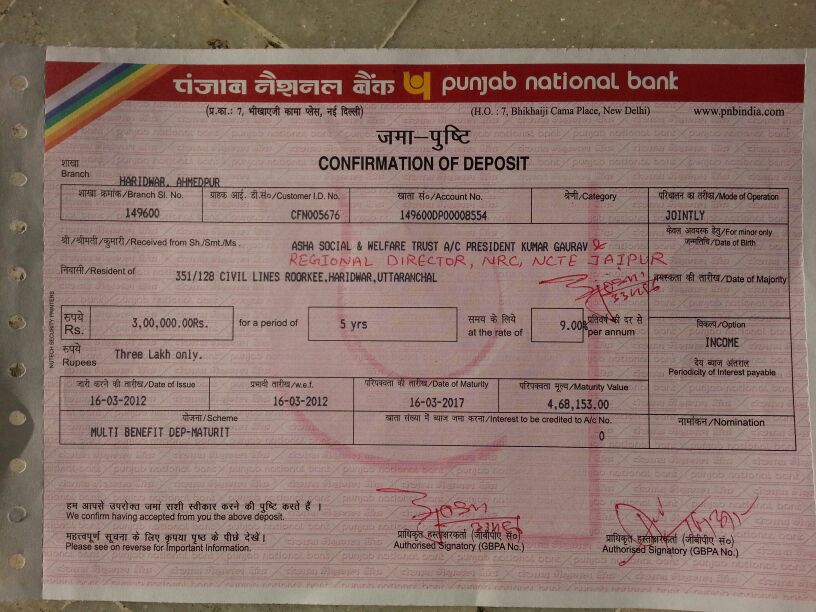 पंजाब नैशनल बैंक punjab national bank
(प्र.का.: 7, भीखाएजी कामा प्लेस, नई दिल्ली) (H.O. : 7, Bhikhaiji Cama Place, New Delhi) www.pnbindia.com
जमा-पुष्टि
CONFIRMATION OF DEPOSIT
शाखा
Branch HARIDWAR, AHMEDPUR
शाखा क्रमांक/Branch Sl. No. ग्राहक आई. डी.सं०/Customer I.D. No. खाता सं०/Account No. श्रेणी/Category परिचालन का तरीका/Mode of Operation
149600 CFN005676 149600DP00008554 JOINTLY
श्री/श्रीमती/कुमारी/Received from Sh./Smt./Ms. ASHA SOCIAL & WELFARE TRUST A/C PRESIDENT KUMAR GAURAV &
केवल अवयस्क हेतु/For minor only
जन्मतिथि/Date of Birth
REGIONAL DIRECTOR, NRC, NCTE JAIPUR
निवासी/Resident of 351/128 CIVIL LINES ROORKEE,HARIDWAR,UTTARANCHAL
वयस्कता की तारीख/Date of Majority
रुपये
Rs. 3,00,000.00Rs. for a period of 5 yrs
समय के लिये
at the rate of 9.00% प्रतिवर्ष की दर से
per annum
विकल्प/Option
INCOME
रुपये
Rupees Three Lakh only.
देय ब्याज अंतराल
Periodicity of Interest payable
जारी करने की तारीख/Date of Issue प्रभावी तारीख/w.e.f. परिपक्वता की तारीख/Date of Maturity परिपक्वता मूल्य/Maturity Value
16-03-2012 16-03-2012 16-03-2017 4,68,153.00
योजना/Scheme खाता संख्या में ब्याज जमा करना/Interest to be credited to A/c No. नामांकन/Nomination
MULTI BENEFIT DEP-MATURIT 0
हम आपसे उपरोक्त जमां राशी स्वीकार करने की पुष्टि करते हैं ।
We confirm having accepted from you the above deposit.
महत्वपूर्ण सूचना के लिए कृपया पृष्ठ के पीछे देखें।
Please see on reverse for Important Information.
प्राधिकृत हस्ताक्षरकर्ता (जीबीपीए सं०)
Authorised Signatory (GBPA No.)
प्राधिकृत हस्ताक्षरकर्ता (जीबीपीए सं०)
Authorised Signatory (GBPA No.)
NUTECH SECURITY PRINTERS